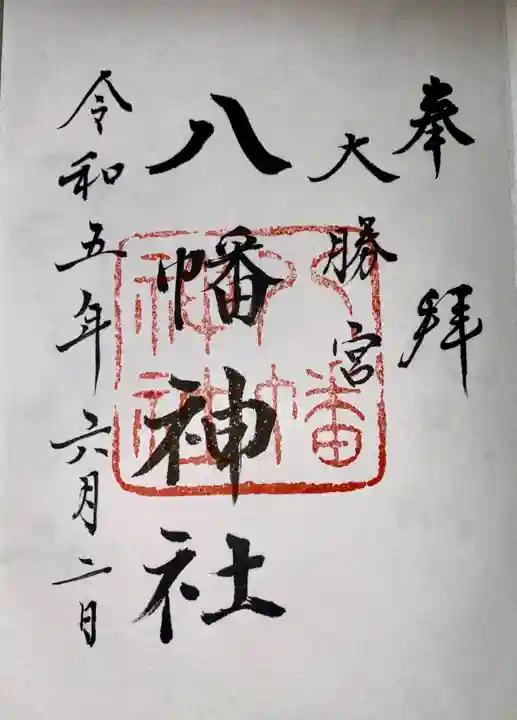 奉拝
大勝宮
八幡神社
令和五年六月二日
八幡
神社